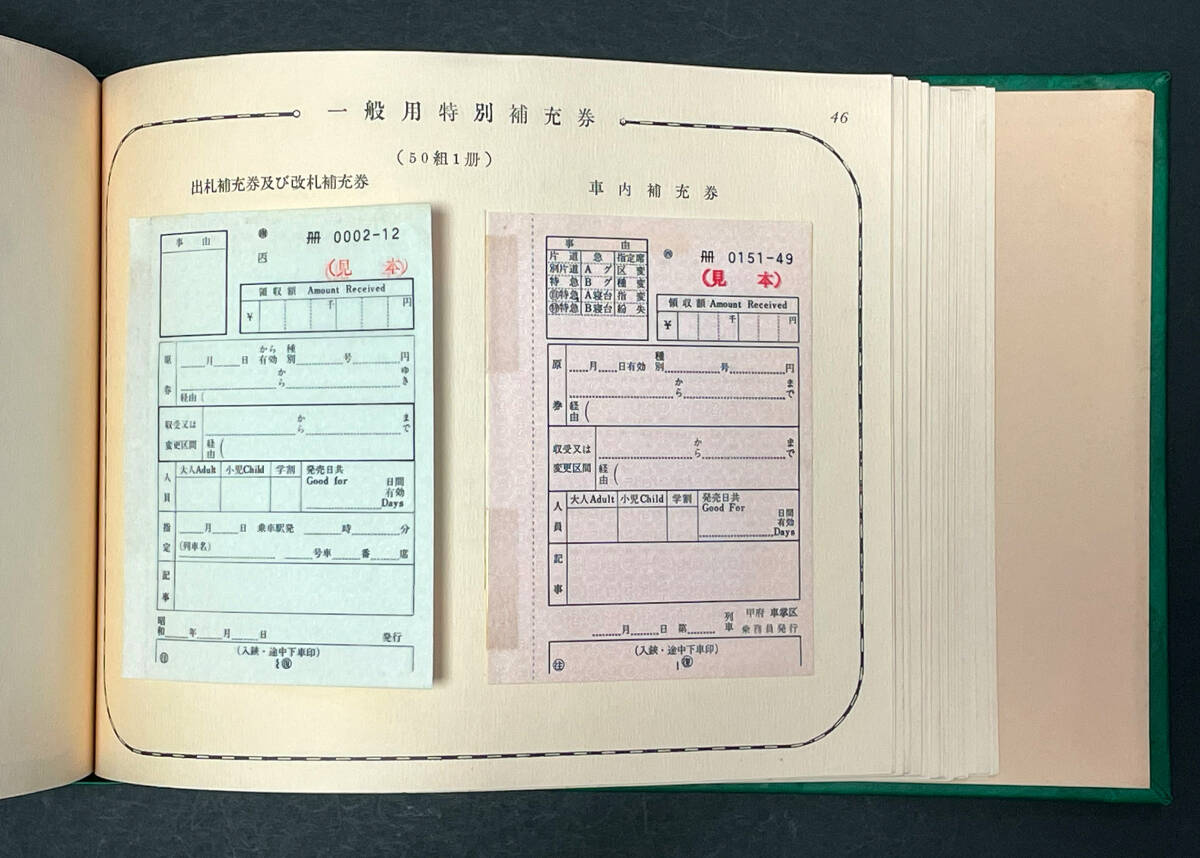 一般用特別補充券
46
(50組1册)
出札補充券及び改札補充券
車内補充券
事由
册 0002-12
(見本)
領収額 Amount Received
¥ 千 円
原券
月 日 から有効 種別 号 円
から ゆき
経由(
収受又は変更区間
から まで
経由(
人員
大人Adult 小児Child 学割 発売日共 Good for 日間有効 Days
指定
月 日 乗車駅発 時 分
(列車名) 号車 番 席
記事
昭和 年 月 日 発行
(入鋏・途中下車印)
事由
片道 急 指定席
別片道 Aグ 区変
特急 Bグ 種変
特急 A寝台 指変
特急 B寝台 紛失
册 0151-49
(見本)
領収額 Amount Received
¥ 千 円
原券
月 日有効 種別 号 円
から まで
経由(
収受又は変更区間
から まで
経由(
人員
大人Adult 小児Child 学割 発売日共 Good For 日間有効 Days
記事
月 日 第 列車 甲府車掌区乗務員発行
(入鋏・途中下車印)